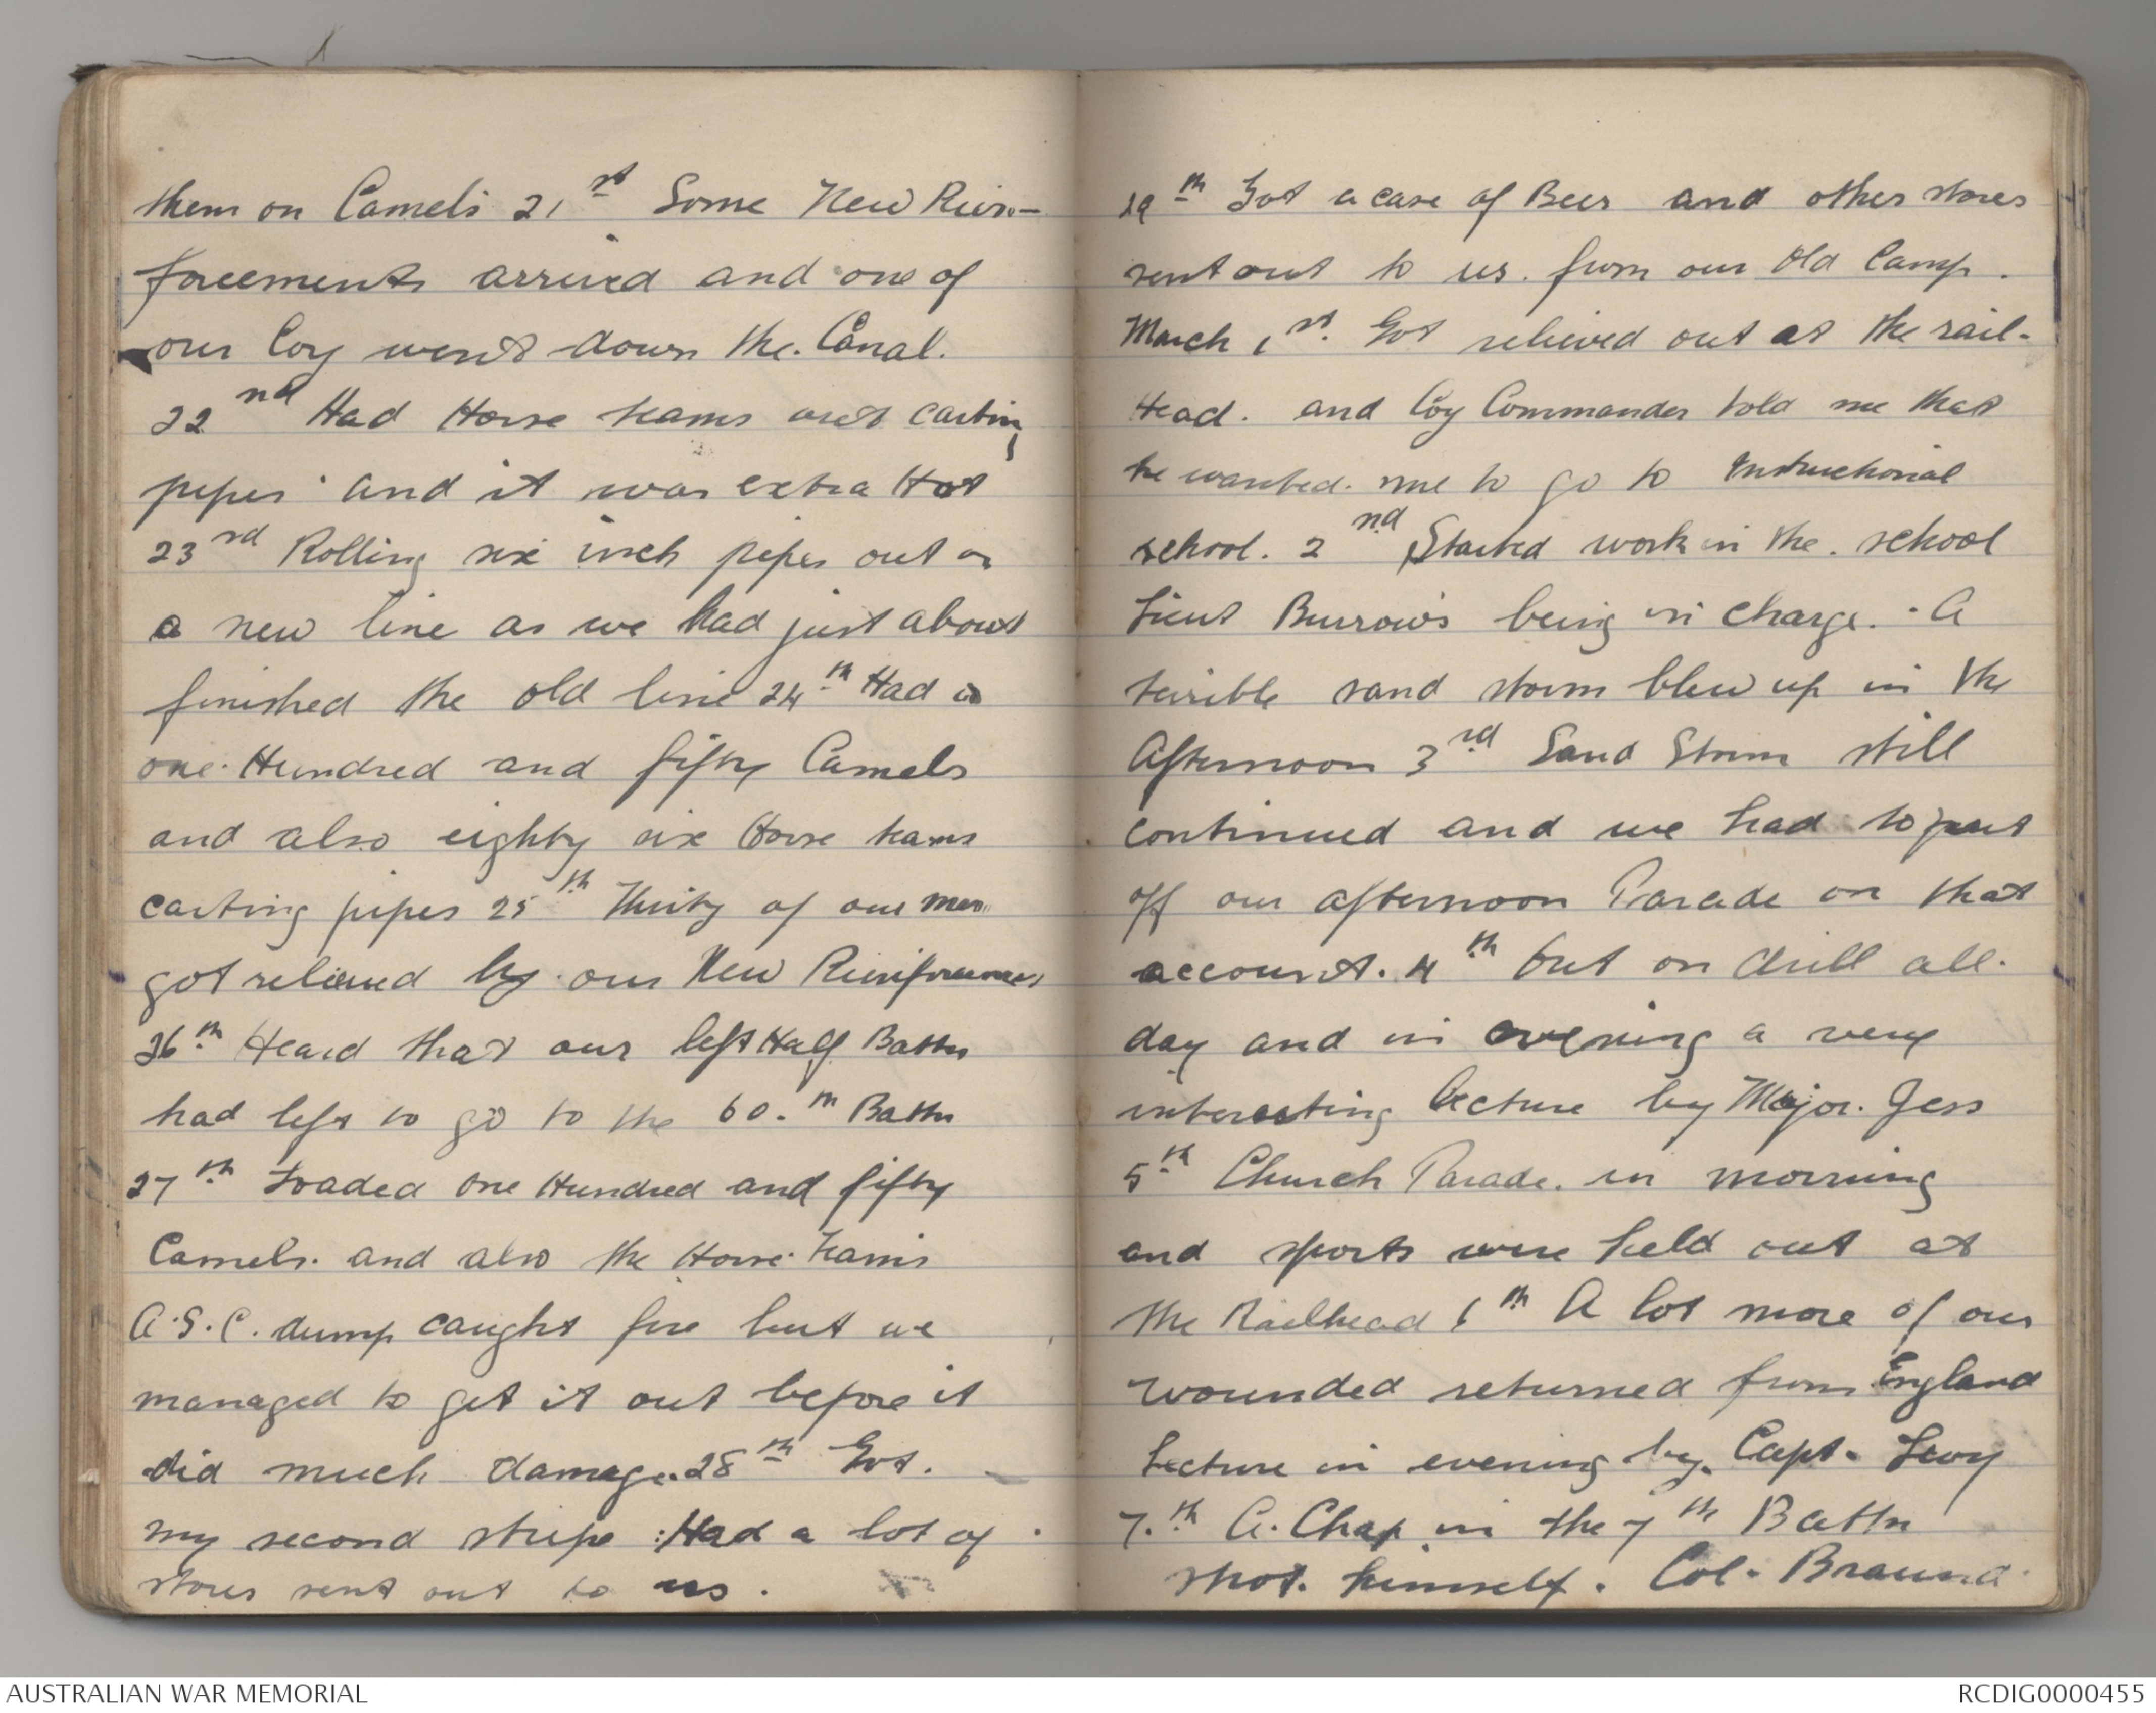 them on Camels 21st Some New Rein-
forcements arrived and one of
our Coy went down the. Canal.
22nd Had Horse teams out carting
pipes and it was extra Hot
23rd Rolling six inch pipes out on
a new line as we had just about
finished the old line 24th Had
one Hundred and fifty Camels
and also eighty six Horse teams
carting pipes 25th Thirty of our men
got relieved by our New Reinforcements
26th Heard that our left Half Battn
had left to go to the 60.th Battn
27th Loaded One Hundred and fifty
Camels. and also the Horse Teams
A.S.C. dump caught fire but we
managed to get it out before it
did much damage. 28th Got.
my second stripe : Had a lot of
stores sent out to us.
29th Got a case of Beer and other stores
sent out to us. from our Old Camp.
March 1st. Got relieved out at the rail-
Head. and Coy Commander told me that
he wanted. me to go to Instructional
school. 2nd Started work in the. school
Lieut Burrows being in charge. A
terrible sand storm blew up in the
Afternoon 3rd Sand Storm still
continued and we had to put
off our afternoon Parade on that
account. 4th Out on drill all.
day and in evening a very
interesting lecture by Major. Jess
5th Church Parade. in morning
and sports were held out at
the Railhead 6th A lot more of our
wounded returned from England
Lecture in evening by. Capt. Levy
7.th A. Chap in the 7th Battn
shot. himself. Col. Braund